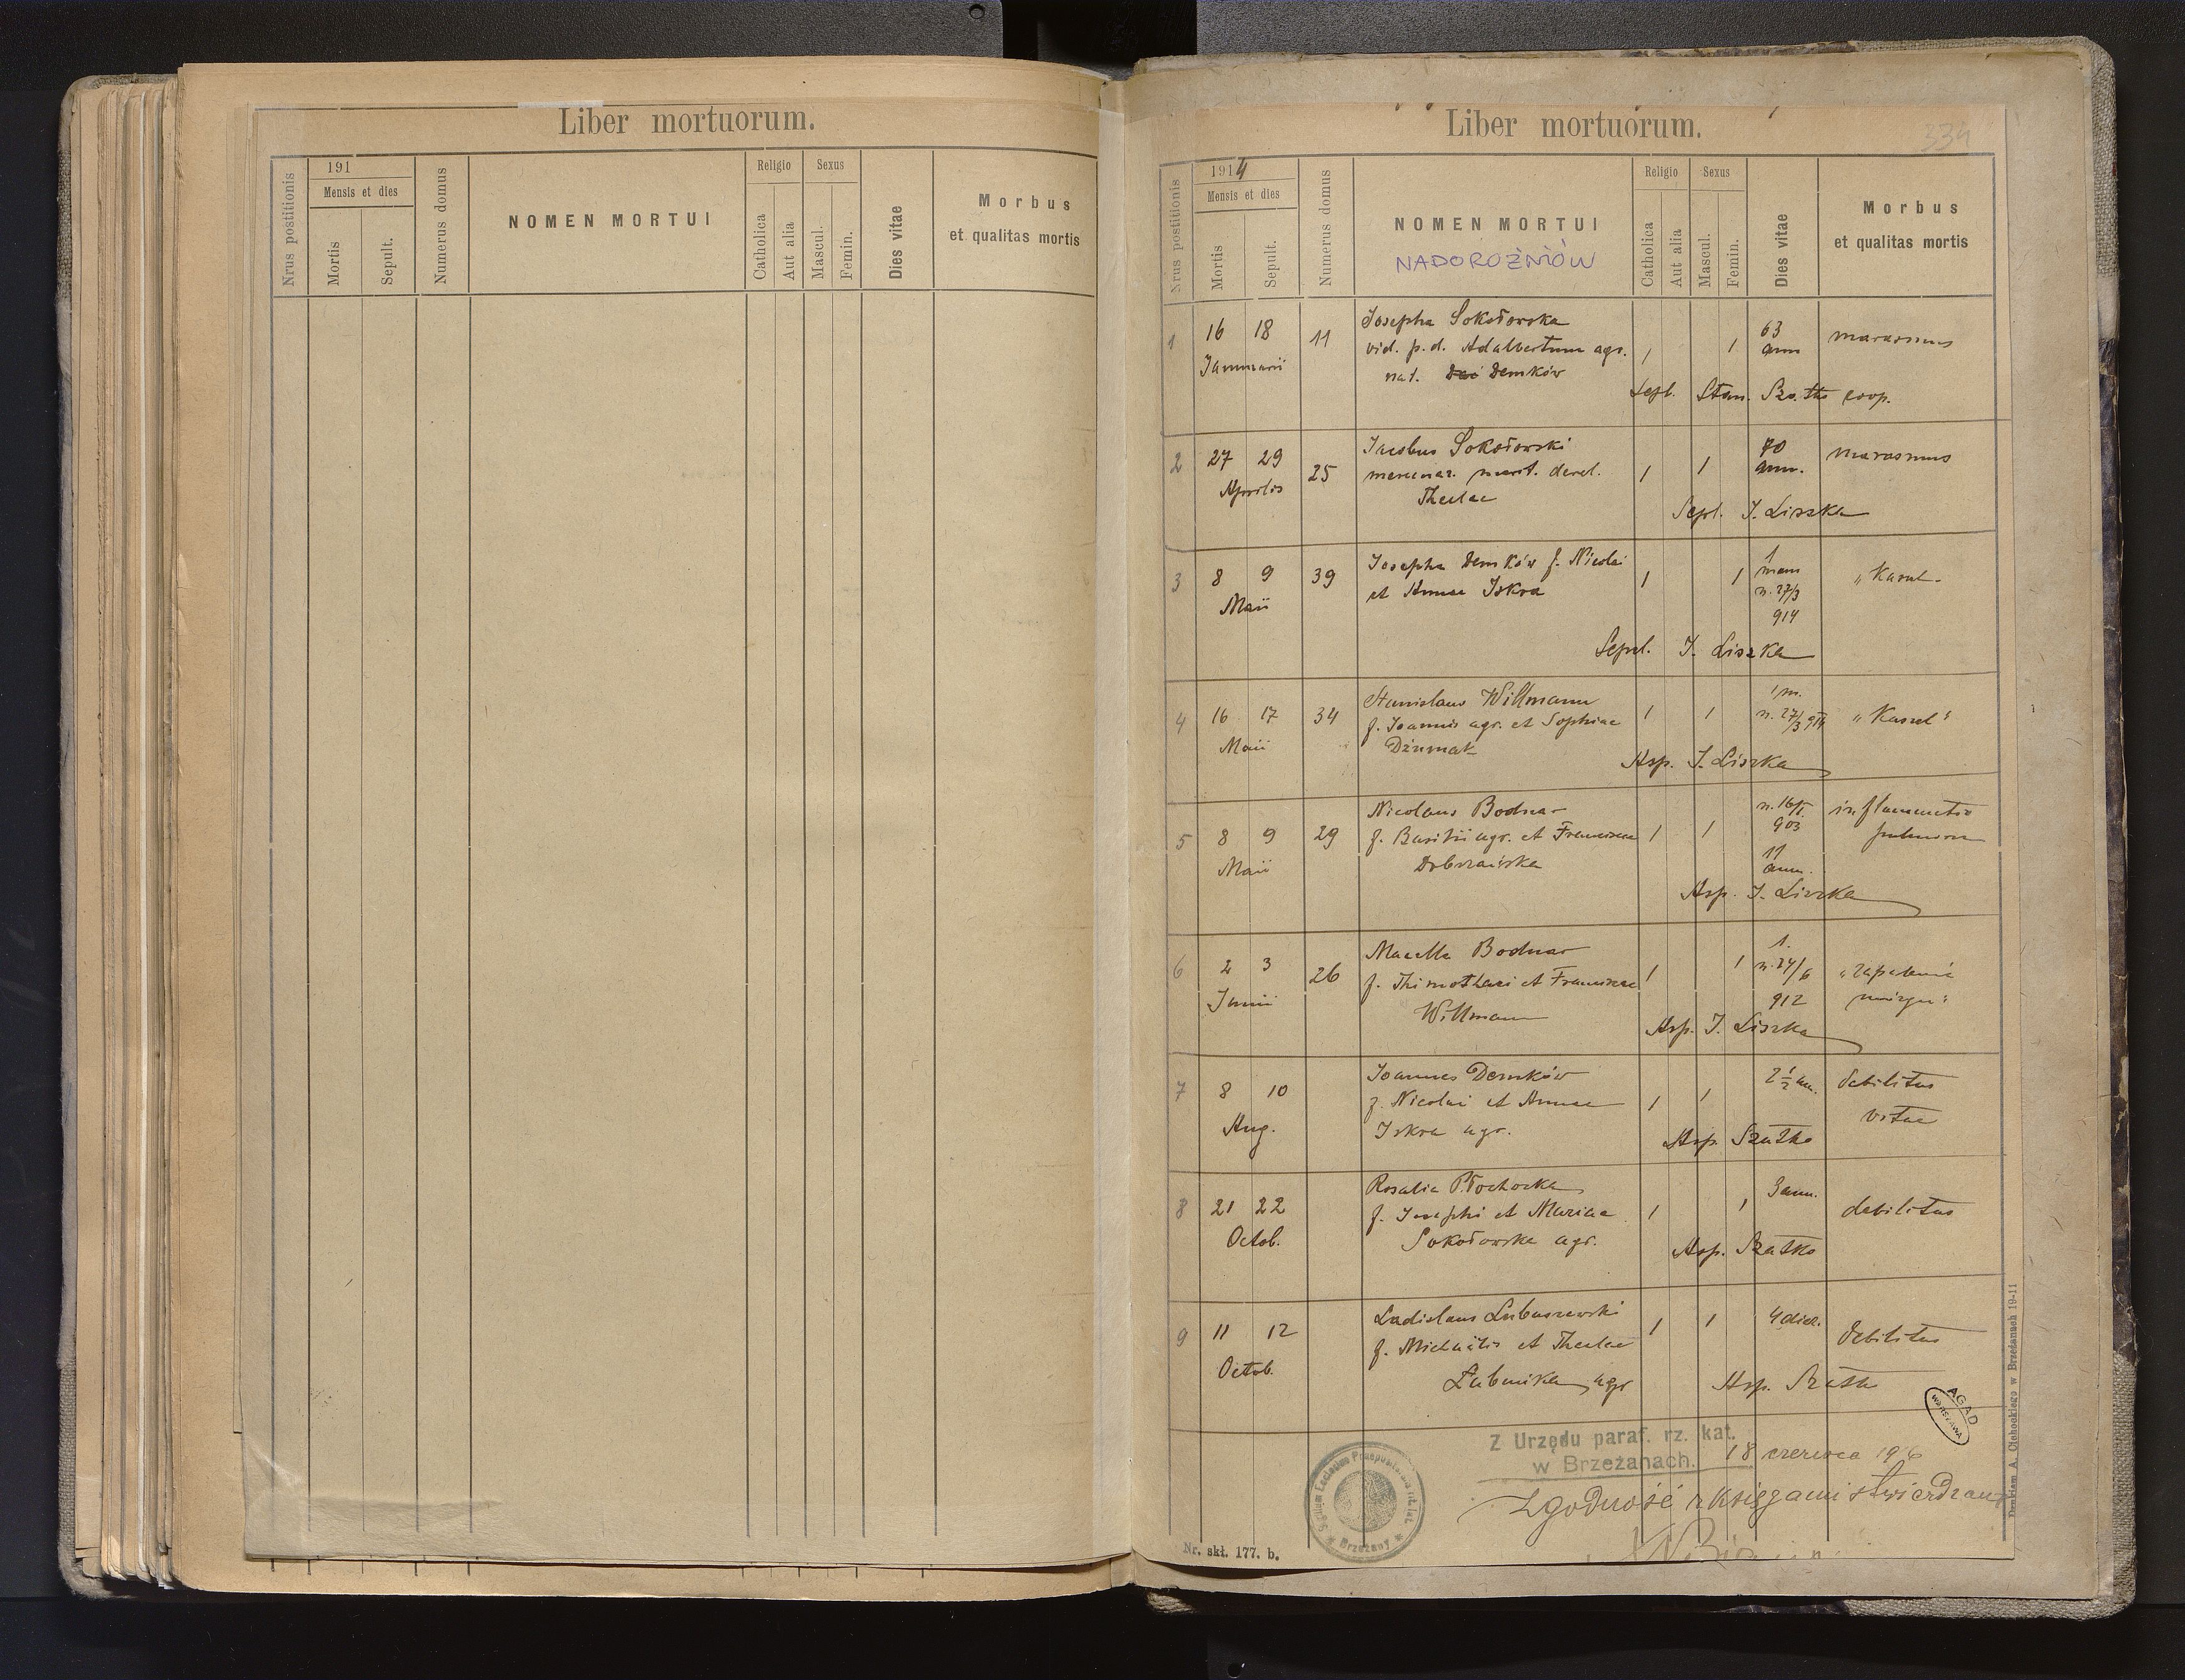 Liber mortuorum.
Nrus postitionis
191
Mensis et dies
Mortis
Sepult.
Numerus domus
NOMEN MORTUI
Religio
Catholica
Aut alia
Sexus
Mascul.
Femin.
Dies vitae
Morbus
et qualitas mortis
Liber mortuorum.
334
Nrus postitionis
1914
Mensis et dies
Mortis
Sepult.
Numerus domus
NOMEN MORTUI
NADOROŻNIÓW
Religio
Catholica
Aut alia
Sexus
Mascul.
Femin.
Dies vitae
Morbus
et qualitas mortis
1 16 18 11 Josepha Sokołowska 1 1 63 marasmus
Januarii vid. p. d. Adalbertum agr. ann
nat. Demków
Sepl. Stan. coop.
2 27 29 25 Jacobus Sokołowski 1 1 70 marasmus
Aprilis mercenar. marit. derel. ann.
Theclae
Sepl. J. Liszka
3 8 9 39 Josepha Demków f. Nicolai 1 1 1 "Kaszl.
Maii et Annae Iskra mens
n. 27/3
914
Sepul. J. Liszka
4 16 17 34 Stanislaus Willmann 1 1 1 m. "Kaszel"
Maii f. Joannis agr. et Sophiae n. 27/3 914
Dżumak
Asp. J. Liszka
5 8 9 29 Nicolaus Bodnar 1 1 n. 16/I inflammatio
Maii f. Basilii agr. et Franciscae 903 pulmon
Dobrzańska 11
ann.
Asp. J. Liszka
6 2 3 26 Marcella Bodnar 1 1 1. "zapalenie
Junii f. Thimothaei et Franciscae n. 24/6 mózgu"
Willmann 912
Asp. J. Liszka
7 8 10 Joannes Demków 1 1 2 1/2 an. debilitas
Aug. f. Nicolai et Annae vitae
Iskra agr.
Asp. Szatko
8 21 22 Rosalia Płochocka 1 1 3 ann. debilitas
Octob. f. Josephi et Mariae
Sokołowska agr.
Asp. Szatko
9 11 12 Ladislaus Lubaszewski 1 1 4 dier. debilitas
Octob. f. Michaelis et Theclae
agr
Asp.
AGAD
WARSZAWA
Z Urzędu paraf. rz. kat.
w Brzeżanach. 18 czerwca
Zgodność z księgami stwierdzam
Brzeżany
Nr. skł. 177. b.
Drukiem A. Cichockiego w Brzeżanach 19-11